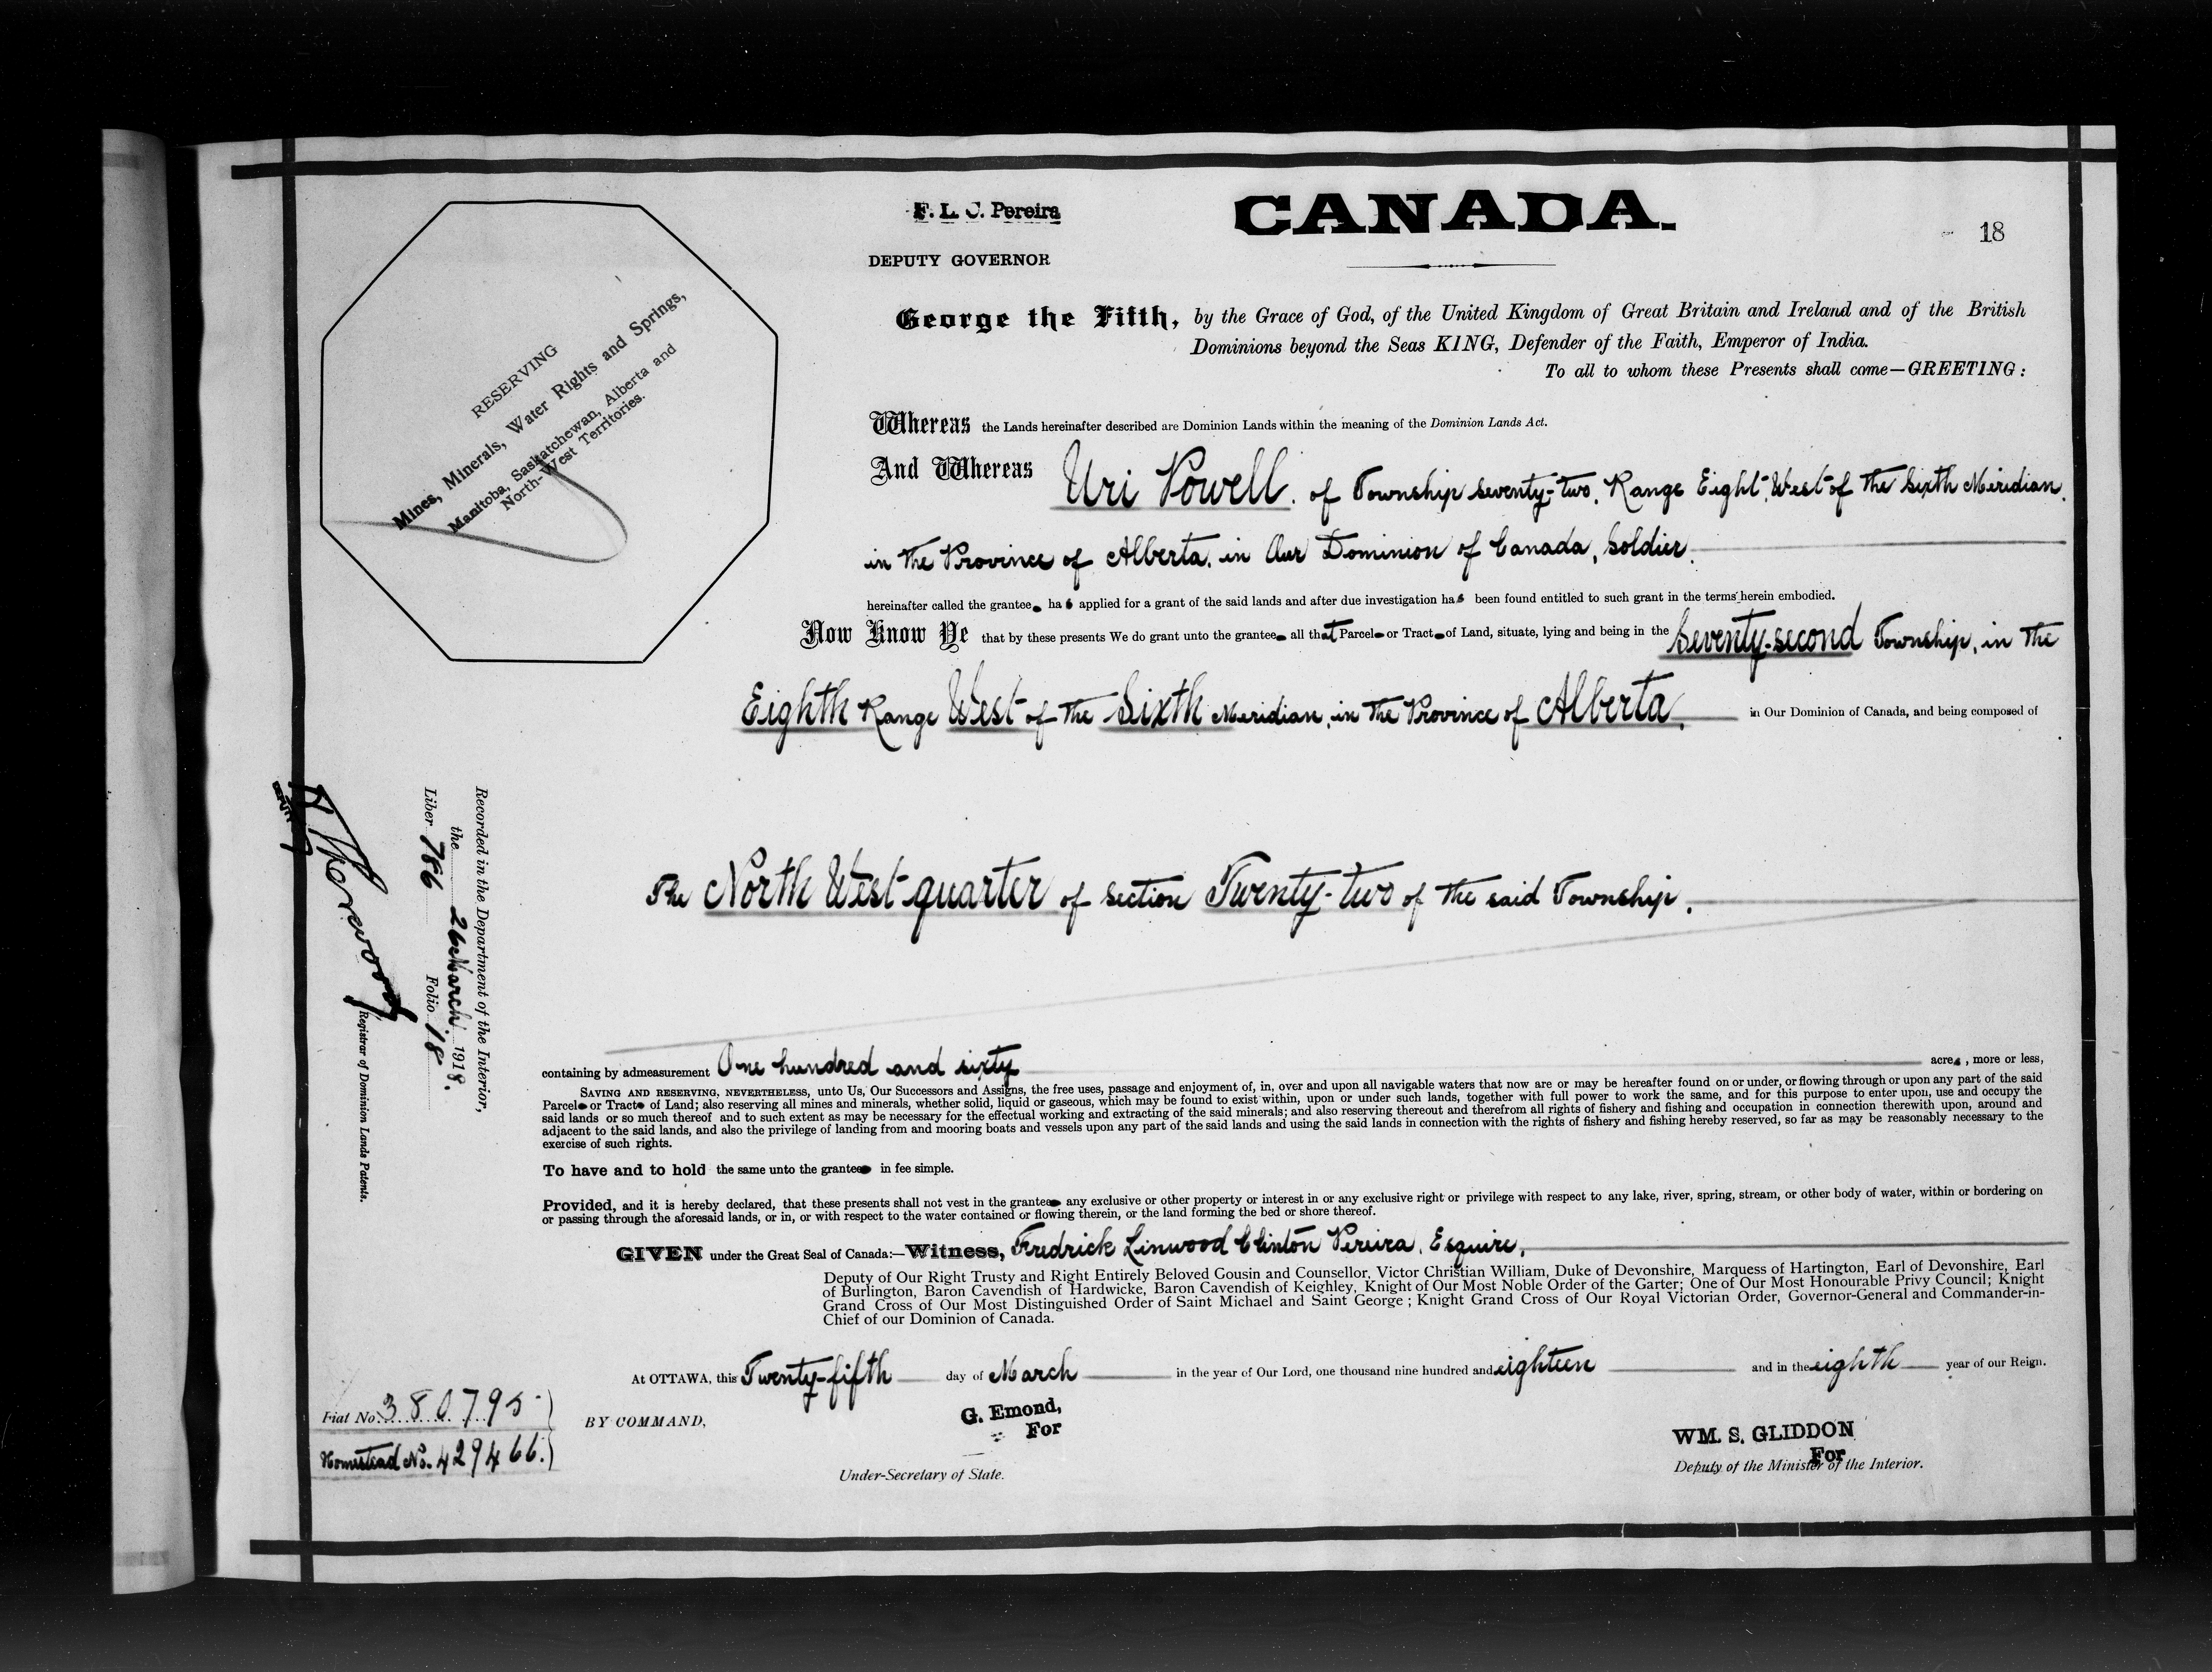 F. L. C. Pereira
CANADA.
18
DEPUTY GOVERNOR
George the Fifth, by the Grace of God, of the United Kingdom of Great Britain and Ireland and of the British
Dominions beyond the Seas KING, Defender of the Faith, Emperor of India.
To all to whom these Presents shall come—GREETING:
RESERVING
Mines, Minerals, Water Rights and Springs,
Manitoba, Saskatchewan, Alberta and
North-West Territories.
Whereas the Lands hereinafter described are Dominion Lands within the meaning of the Dominion Lands Act.
And Whereas Uri Powell, of Township seventy-two, Range Eight, West of the Sixth Meridian,
in the Province of Alberta, in Our Dominion of Canada, Soldier,
hereinafter called the grantee has applied for a grant of the said lands and after due investigation has been found entitled to such grant in the terms herein embodied.
Now Know Ye that by these presents We do grant unto the grantee all that Parcel or Tract of Land, situate, lying and being in the Seventy-second Township, in the
Eighth Range West of the Sixth Meridian, in the Province of Alberta, in Our Dominion of Canada, and being composed of
The North West quarter of section Twenty-two of the said Township.
Recorded in the Department of the Interior,
the 26 March 1918.
Liber 786 Folio 18
Registrar of Dominion Lands Patents.
containing by admeasurement One hundred and sixty acres, more or less,
SAVING AND RESERVING, NEVERTHELESS, unto Us, Our Successors and Assigns, the free uses, passage and enjoyment of, in, over and upon all navigable waters that now are or may be hereafter found on or under, or flowing through or upon any part of the said
Parcel or Tract of Land; also reserving all mines and minerals, whether solid, liquid or gaseous, which may be found to exist within, upon or under such lands, together with full power to work the same, and for this purpose to enter upon, use and occupy the
said lands or so much thereof and to such extent as may be necessary for the effectual working and extracting of the said minerals; and also reserving thereout and therefrom all rights of fishery and fishing and occupation in connection therewith upon, around and
adjacent to the said lands, and also the privilege of landing from and mooring boats and vessels upon any part of the said lands and using the said lands in connection with the rights of fishery and fishing hereby reserved, so far as may be reasonably necessary to the
exercise of such rights.
To have and to hold the same unto the grantee in fee simple.
Provided, and it is hereby declared, that these presents shall not vest in the grantee any exclusive or other property or interest in or any exclusive right or privilege with respect to any lake, river, spring, stream, or other body of water, within or bordering on
or passing through the aforesaid lands, or in, or with respect to the water contained or flowing therein, or the land forming the bed or shore thereof.
GIVEN under the Great Seal of Canada:—Witness, Fredrick Linwood Clinton Pereira, Esquire,
Deputy of Our Right Trusty and Right Entirely Beloved Cousin and Counsellor, Victor Christian William, Duke of Devonshire, Marquess of Hartington, Earl of Devonshire, Earl
of Burlington, Baron Cavendish of Hardwicke, Baron Cavendish of Keighley, Knight of Our Most Noble Order of the Garter; One of Our Most Honourable Privy Council; Knight
Grand Cross of Our Most Distinguished Order of Saint Michael and Saint George; Knight Grand Cross of Our Royal Victorian Order, Governor-General and Commander-in-
Chief of our Dominion of Canada.
At OTTAWA, this Twenty-fifth day of March in the year of Our Lord, one thousand nine hundred and eighteen and in the eighth year of our Reign.
Fiat No. 380795
Homestead No. 429466.
BY COMMAND,
G. Emond,
For
Under-Secretary of State.
WM. S. GLIDDON
For
Deputy of the Minister of the Interior.